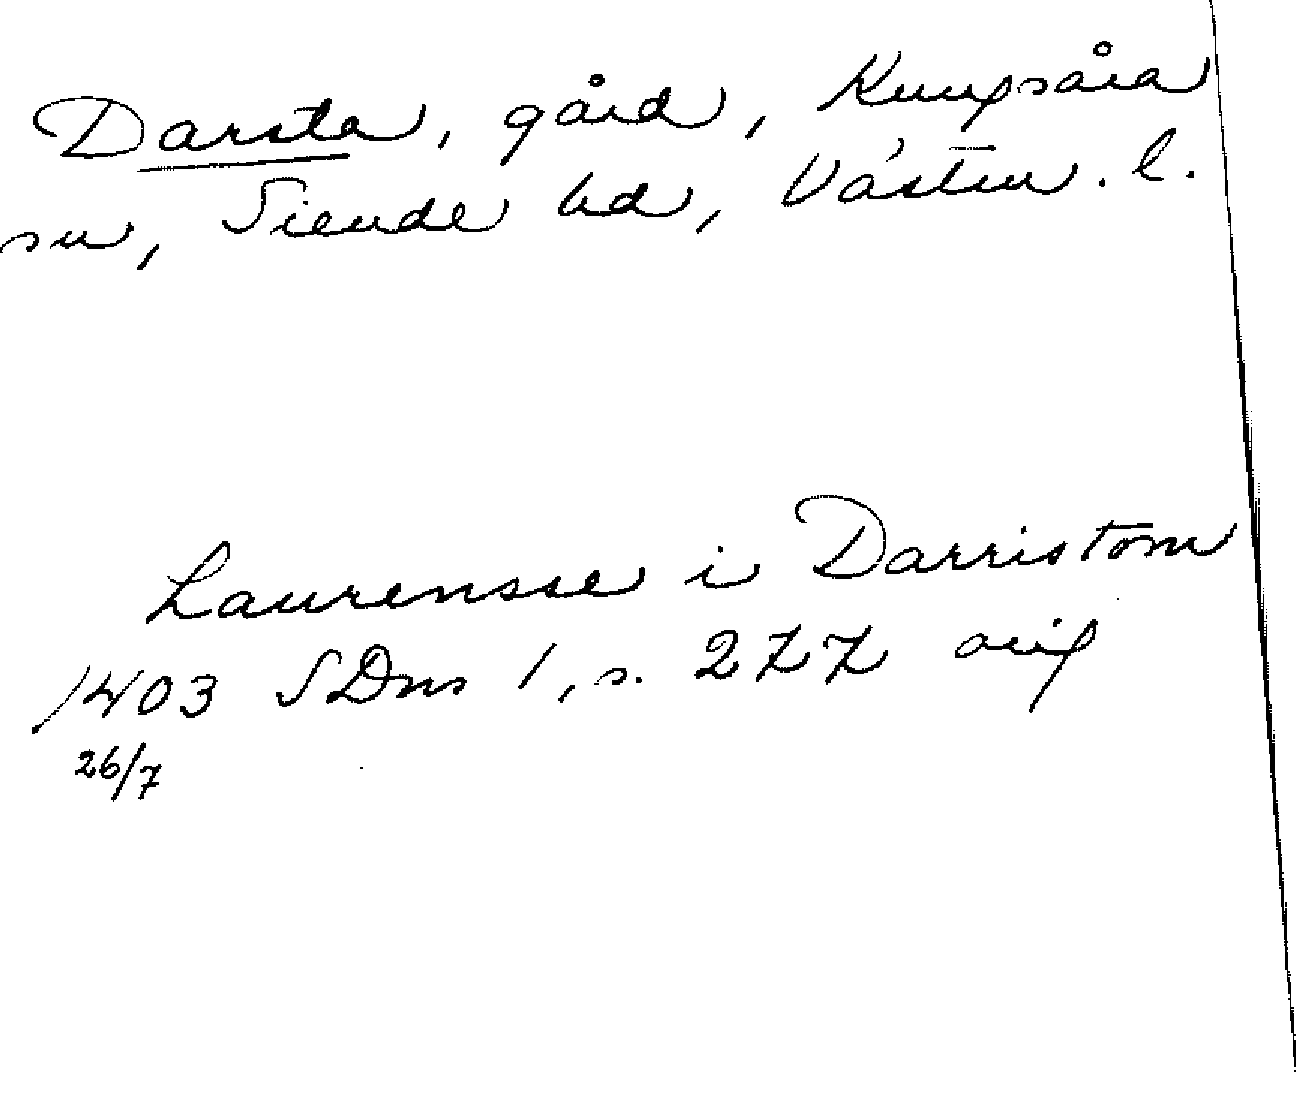 Darsta, gård, Kungsåra
sn, Siende hd, Västm. l.
Laurensse i Darristom
1403 SDns 1, s. 277 orig
26/7